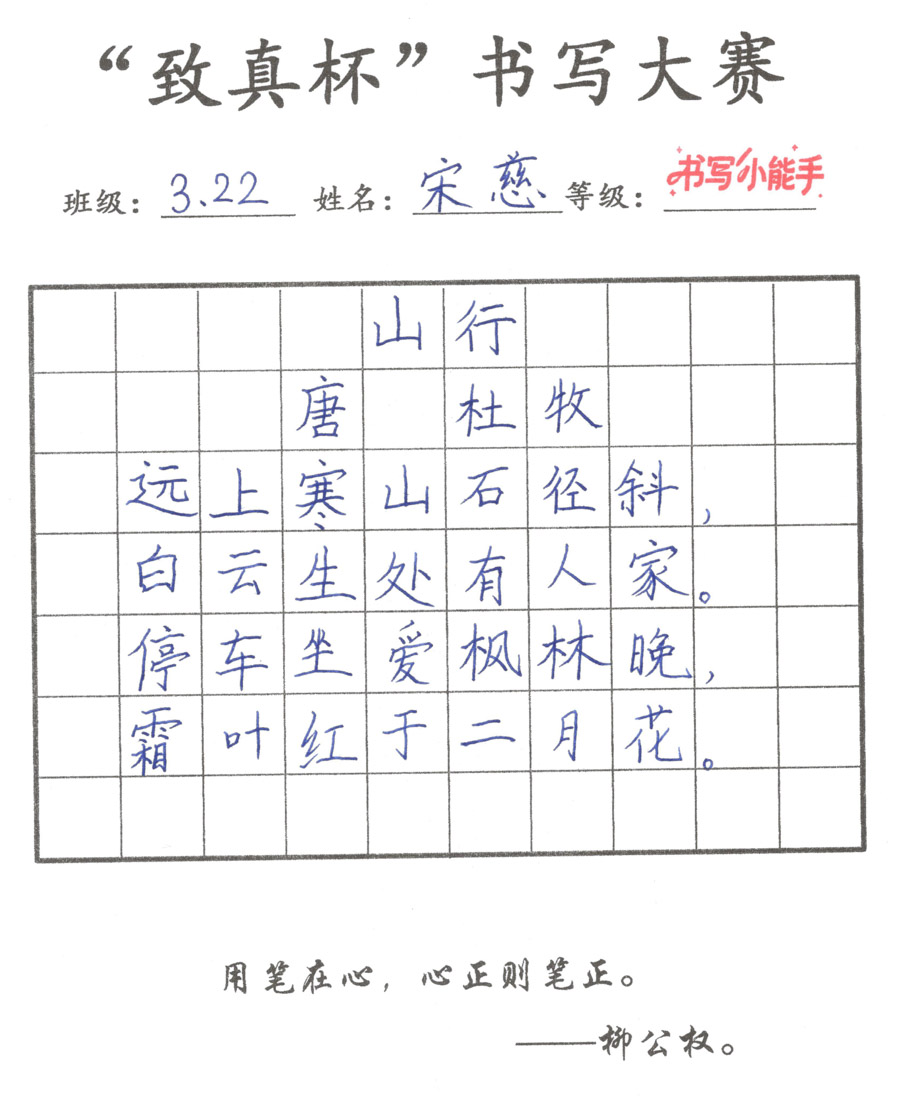 “致真杯”书写大赛
班级：3.22 姓名：宋慈 等级：书写小能手
山行
唐 杜牧
远上寒山石径斜，
白云生处有人家。
停车坐爱枫林晚，
霜叶红于二月花。
用笔在心，心正则笔正。
——柳公权。